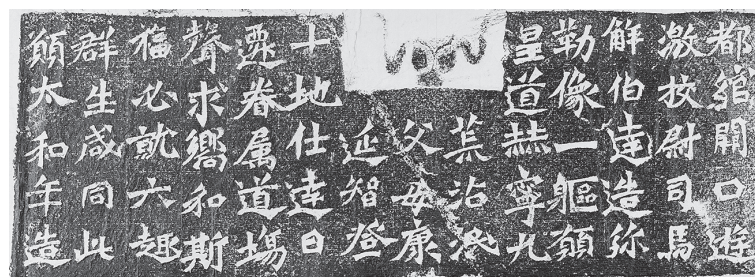 都綰闕口遊
激挍尉司馬
解伯達造弥
勒像一軀願
皇道赫寧九
荒沾泠
父母康
延智登
十地仕達日
遷眷属道場
聲求嚮和斯
福必就六趣
群生咸同此
願太和年造